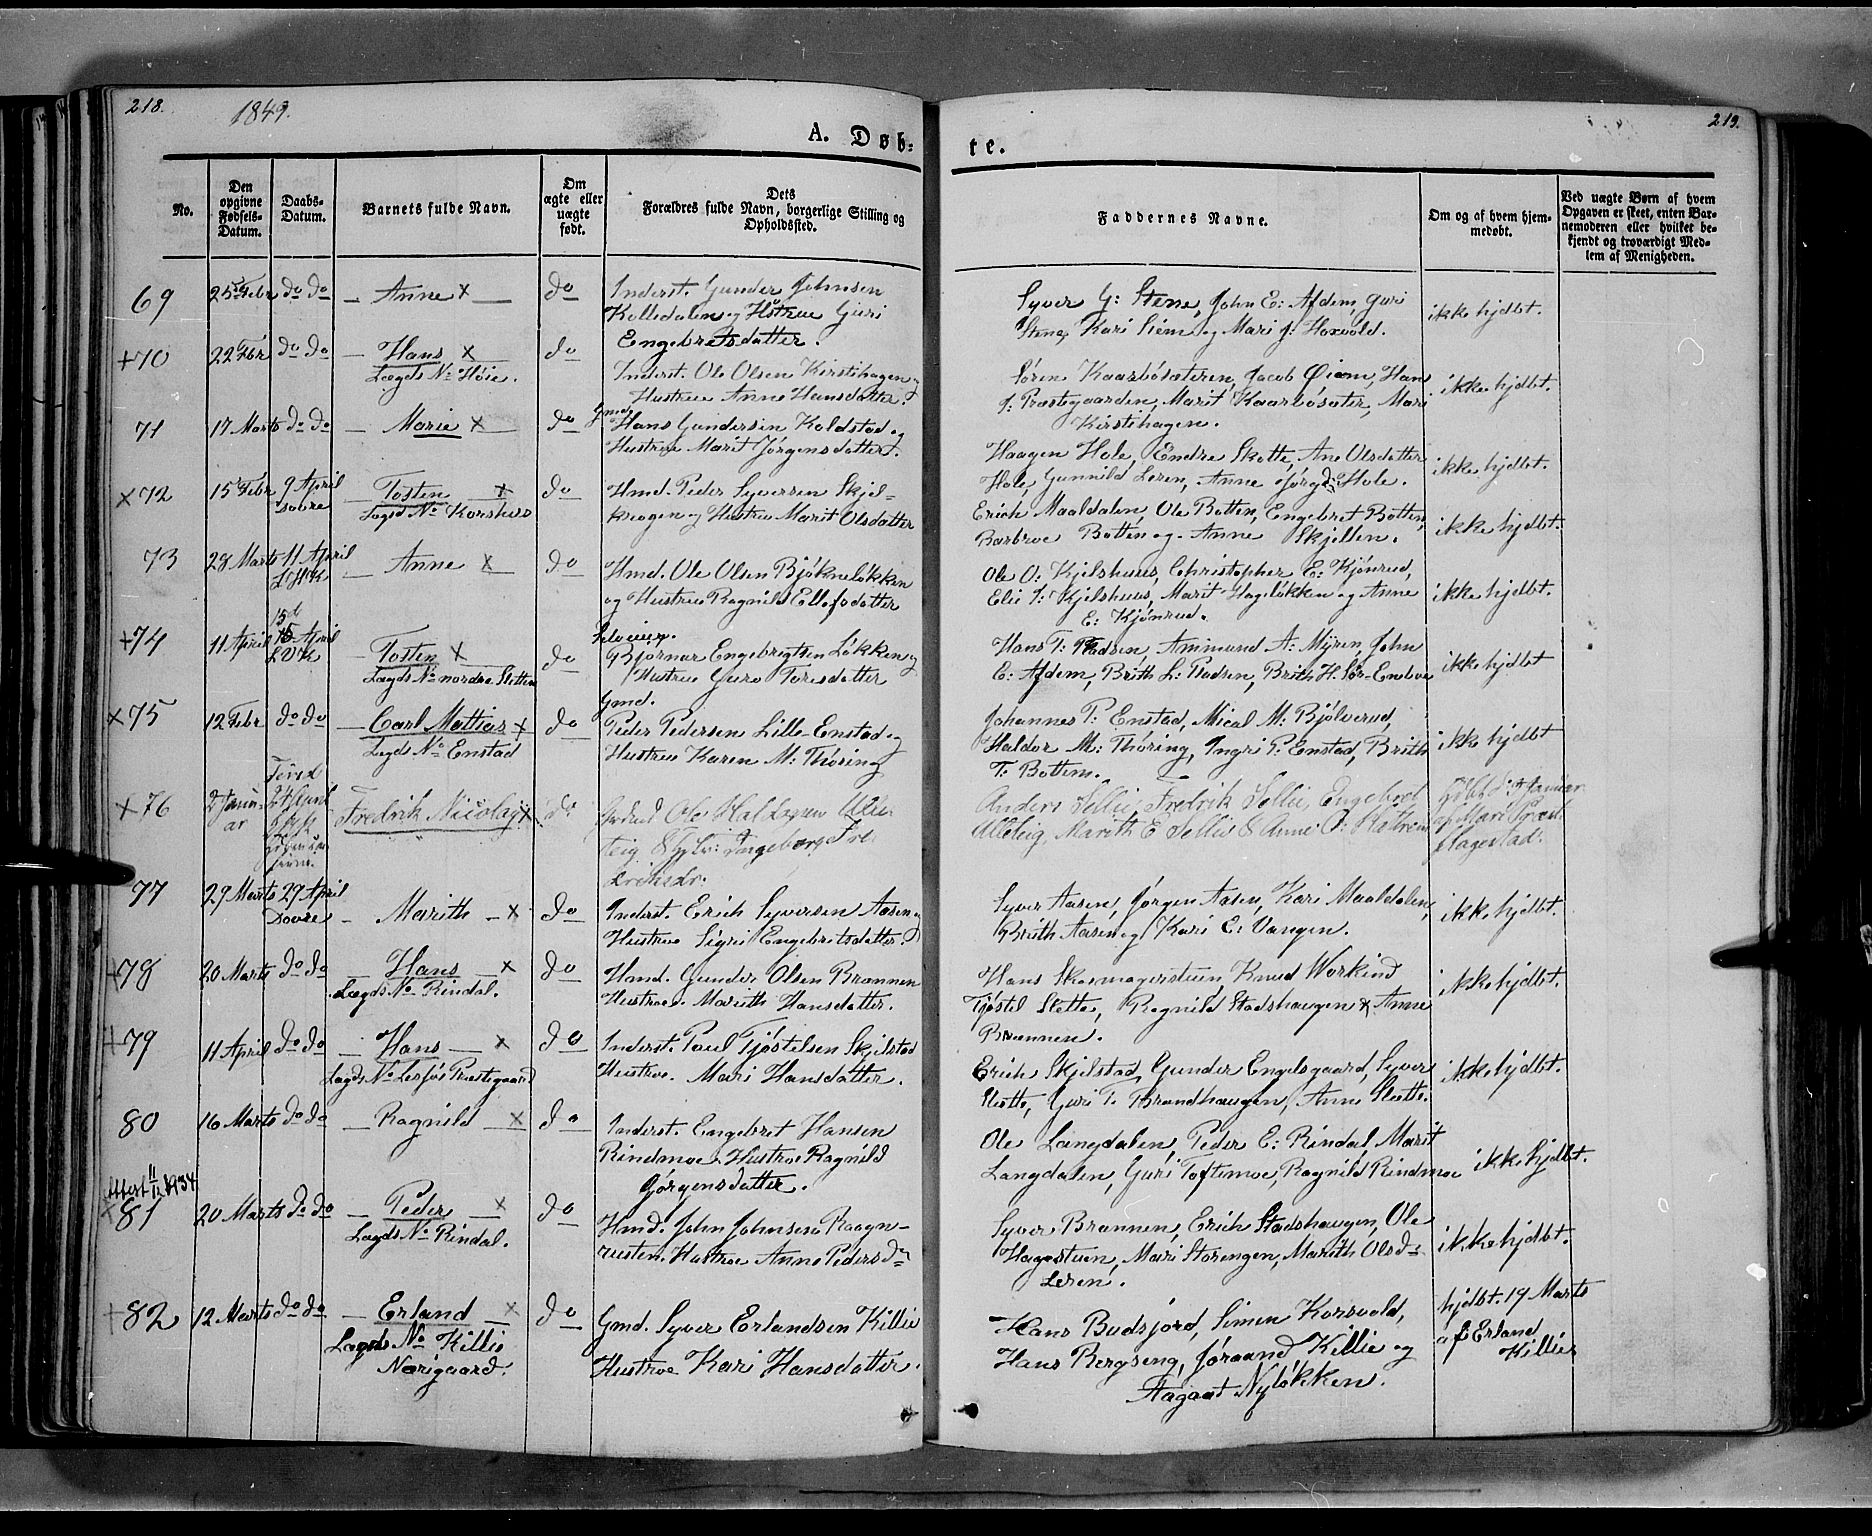 218.
1849.
A. Døb-
te.
219.
No.
Den
opgivne
Fødsels-
Datum.
Daabs-
Datum.
Barnets fulde Navn.
Om
ægte eller
uægte
født.
Dets
Forældres fulde Navn, borgerlige Stilling og
Opholdssted.
Faddernes Navne.
Om og af hvem hjem-
medøbt.
Ved uægte Børn af hvem
Opgaven er skeet, enten Bar-
nemoderen eller hvilket be-
kjendt og troværdigt Med-
lem af Menigheden.
69 25 Febr do do – Anne x – do Inderst. Gunder Johnsen
Kolledalen og Hstrue Guri
Engebretsdatter.
Syver G: Stene, John E: Afdem, Guri
Stene, Kari Siem og Mari J: Hoxvold.
ikke hjdbt.
+70 22 Fbr do do – Hans x – do
Lægds No Høie.
Inderst. Ole Olsen Kirstihagen og
Hustrue Anne Hansdatter.
Sören Kaarbösæteren, Jacob Øiem, Hans
J: Præstegaarden, Marit Kaarbösæter, Mari
Kirstihagen.
ikke hjdbt.
71 17 Marts do do – Marie x – do Gmd.
Hans Gundersen Kolstad og
Hustrue Marit Jørgensdatter.
Haagen Hole, Endre Slette, Ane Olsdatter
Hole, Gunnild Leren, Anne Jörgd: Hole.
ikke hjdbt.
x72 15 Febr 9 April
Dovre
– Tosten x do
Lægd No Korshus
Hmd. Peder Syversen Skjel-
krogen og Hustrue Marit Olsdatter
Erich Maaldalen, Ole Botten, Engebret Botten,
Barbroe Botten og Anne Skjellen.
ikke hjdbt.
73 28 Marts 11 April
LHK
– Anne x – do
Hmd. Ole Olsen Bjökneløkken
og Hustrue Ragnild Ellefsdatter
Ole O: Kjelshuus, Christopher E: Kjönrud,
Elie I: Kjelshuus, Marit Hagelökken og Anne
E: Kjönrud.
ikke hjdbt.
+74 11 April 15 April
LVK
– Tosten x do
Lægds No nordre Slette
Selveier.
Björnar Engebrigtsen Lökken og
Hustrue Guro Toresdatter
Hans T: Rudsen, Ammund A: Myren, John
E: Afdem, Brith L: Rudsen, Brith H. Sör-Enebo
ikke hjdbt
x75 12 Febr do do – Carl Mattias x do
Lægds No Enstad
Gmd.
Peder Pedersen Lille-Enstad og
Hustrue Karen M: Thöring
Johannes P: Enstad, Mical M: Bjölverud,
Haldor M: Thöring, Ingri P: Enstad, Brith
T: Bottem.
ikke hjdbt
+76 2 Janu-
ar
24 April
Fredrik Nicolay x do
Ole Haldogsen Ulle-
teig Ingeborg Fre-
driksdr.
Anders Sellie, Fredrik Sellie, Engebret
Ulleteig, Marith E Sellie & Anne
Januar
af Mari
Flagestad.
77 29 Marts 29 April
Dovre
– Marith – x do
Inderst. Erich Syversen Aasen og
Hustrue Sigri Engebretsdatter.
Syver Aasen, Jörgen Aasen, Kari Maaldalen,
Brith Aasen og Kari E: Vangen.
ikke hjdbt.
+78 20 Marts do do – Hans – x do
Lægds No Rindal.
Hmd. Gunder Olsen Brönnen
Hustroe. Marith Hansdatter.
Hans Skomagerstuen, Knud Workind
Tjöstil Slette, Ragnild Stadshaugen & Anne
Brønnen.
ikke hjdbt.
+79 11 April do do – Hans – x do
Lægds No Lesjös Præstegaard
Inderst. Poul Tjöstelsen Skjelstad
Hustroe. Mari Hansdatter.
Erich Skjelstad, Gunder Engelsgaard, Syver
Slette, Guri T. Brandhaugen, Anne Slette.
ikke hjdbt.
80 16 Marts do do – Ragnild – x do
Inderst. Engebret Hansen
Rindmoe. Hustroe Ragnild
Jörgensdatter.
Ole Langdalen, Peder E: Rindal, Marit
Langdalen, Guri Toftemoe, Ragnild Rindmoe
ikke hjdbt.
Attest 11/11 1934
x81 20 Marts do do – Peder – x do
Lægds No Rindal.
Hmd. John Johnsen Raagn-
rusten. Hustroe Anne Pedersdr
Syver Brønnen, Erich Stadshaugen, Ole
Hagestuen, Mari Storengen, Marith Olsd:
Leren.
ikke hjdbt.
+82 12 Marts do do – Erland – x do
Lægds No Killie
Norigaard.
Gmd. Syver Erlandsen Killie
Hustroe Kari Hansdatter.
Hans Budsjord, Simen Korsvold,
Hans Bergseng, Jöraand Killie og
Aagaat Nylökken.
hjdbt. 19 Marts
af Erland
Killie